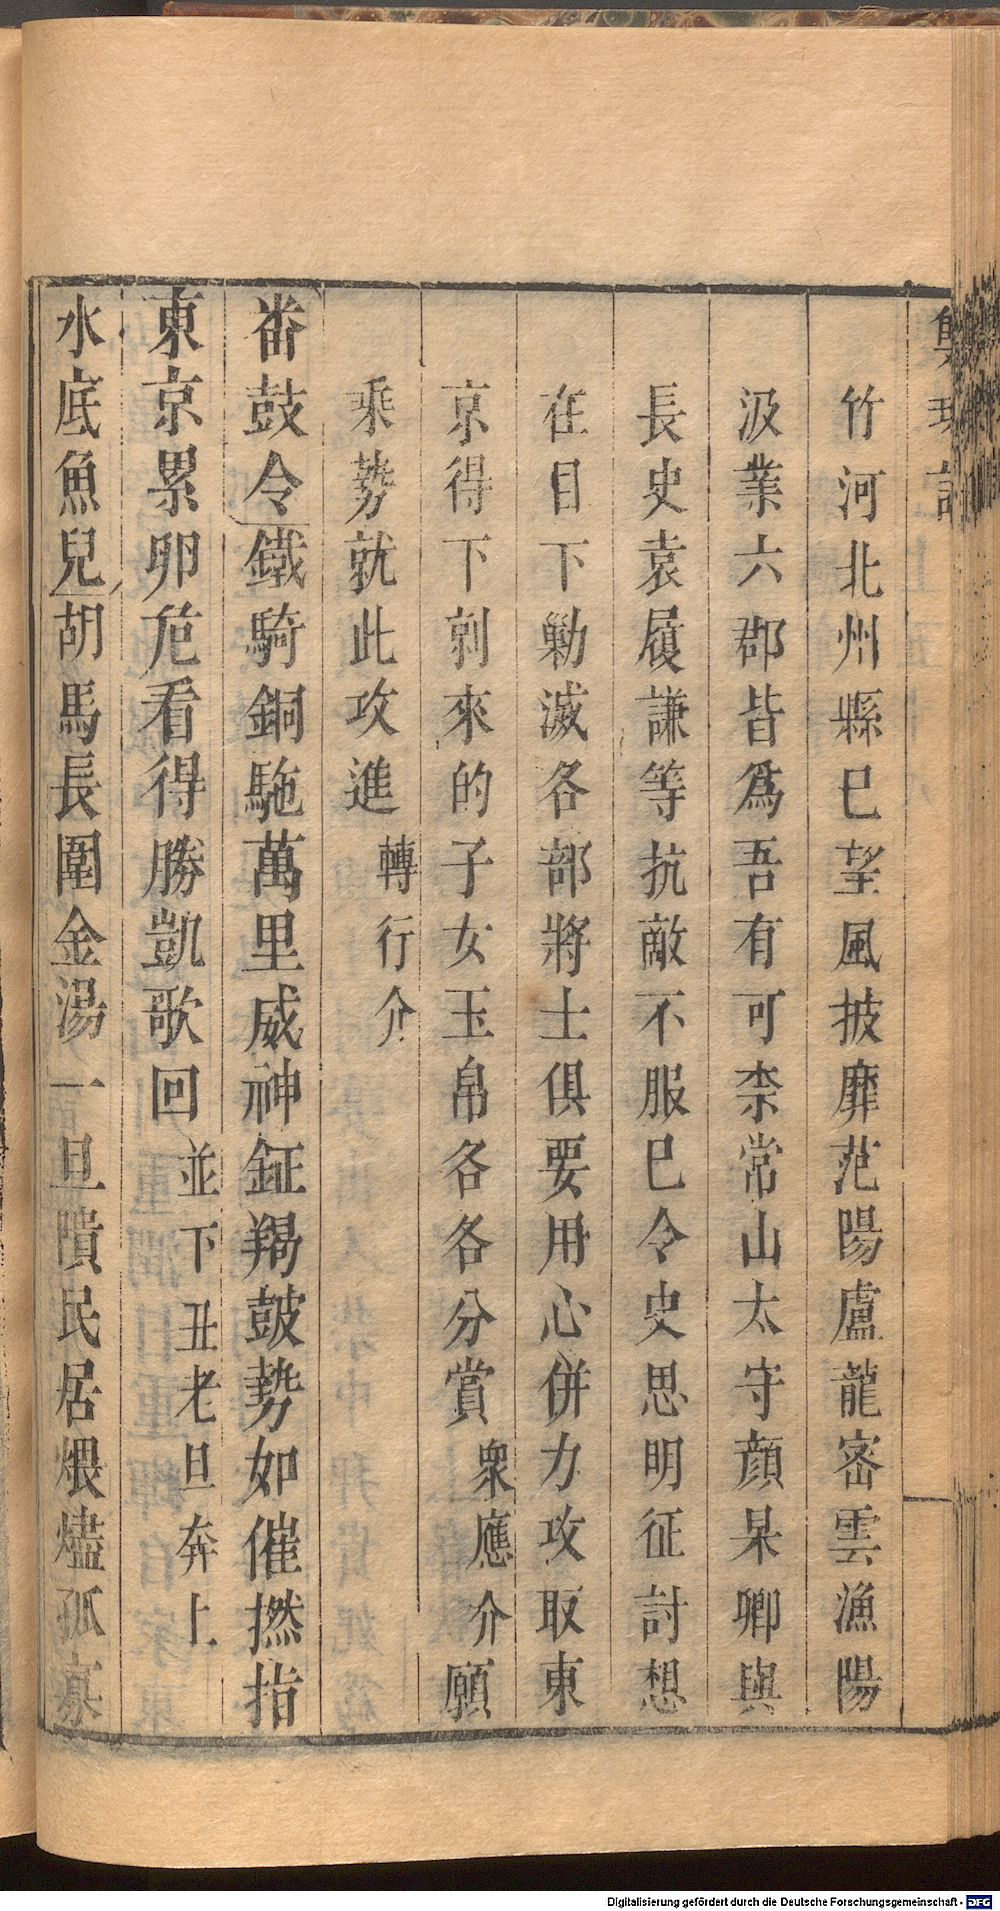 竹河北州縣巳望風披靡范陽盧龍密雲漁陽
汲業六郡皆爲吾有可柰常山太守顔杲卿與
長史袁履謙等抗敵不服巳令史思明征討想
在目下勦滅各部將士俱要用心併力攻取東
京得下剠來的子女玉帛各各分賞衆應介願
乘勢就此攻進轉行介
畨鼓令鐵騎銅駞萬里威神鉦羯鼓勢如催撚指
東京累卵危看得勝凱歌回並下丑老旦奔上
水底魚兒胡馬長圍金湯一旦隤民居煨燼孤寡
Digitalisierung gefördert durch die Deutsche Forschungsgemeinschaft - DFG